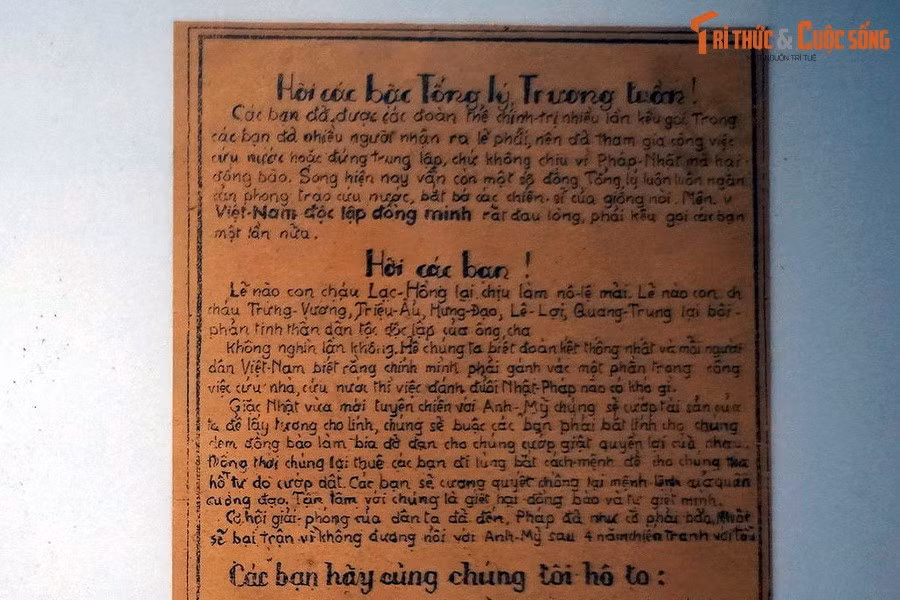 TRI THỨC & CUỘC SỐNG
NGUỒN TRÍ TUỆ
Hỡi các bậc Tổng lý, Trương tuần!
Các bạn đã được các đoàn thể chính-trị nhiều lần kêu gọi. Trong
các bạn đã nhiều người nhận ra lẽ phải, nên đã tham gia công việc
cứu nước hoặc đứng trung lập, chứ không chịu vì Pháp-Nhật mà hại
đồng bào. Song hiện nay vẫn còn một số đông Tổng lý luôn luôn ngăn
cản phong trào cứu nước, bắt bớ các chiến-sĩ của giống nòi. Nên
Việt-Nam độc lập đồng minh rất đau lòng, phải kêu gọi các bạn
một lần nữa.
Hỡi các bạn!
Lẽ nào con cháu Lạc-Hồng lại chịu làm nô-lệ mãi. Lẽ nào con
cháu Trưng-Vương, Triệu-Ẩu, Hưng-Đạo, Lê-Lợi, Quang-Trung lại bội-
phản tinh thần dân tộc độc lập của ông cha
Không nghìn lần không. Hễ chúng ta biết đoàn kết thống nhất và mỗi người
dân Việt-Nam biết rằng chính mình phải gánh vác một phần trong công
việc cứu nhà, cứu nước thì việc đánh đuổi Nhật-Pháp nào có khó gì.
Giặc Nhật vừa mới tuyên chiến với Anh-Mỹ chúng sẽ cướp tài sản của
ta để lấy lương cho lính, chúng sẽ buộc các bạn phải bắt lính cho chúng
đem đồng bào làm bia đỡ đạn cho chúng cướp giật quyền lợi của nhau.
Đồng thời chúng lại thuê các bạn đi lùng bắt cách-mệnh để cho chúng tha
hồ tự do cướp đất. Các bạn sẽ cương quyết chống lại mệnh-lệnh của quân
cường đạo. Tận tâm với chúng là giết hại đồng bào và tự giết mình.
Cơ hội giải-phóng của dân ta đã đến, Pháp đã như cỏ phải bão, Nhật
sẽ bại trận vì không đương nổi với Anh-Mỹ sau 4 năm chiến tranh với tàu
Các bạn hãy cùng chúng tôi hô to: